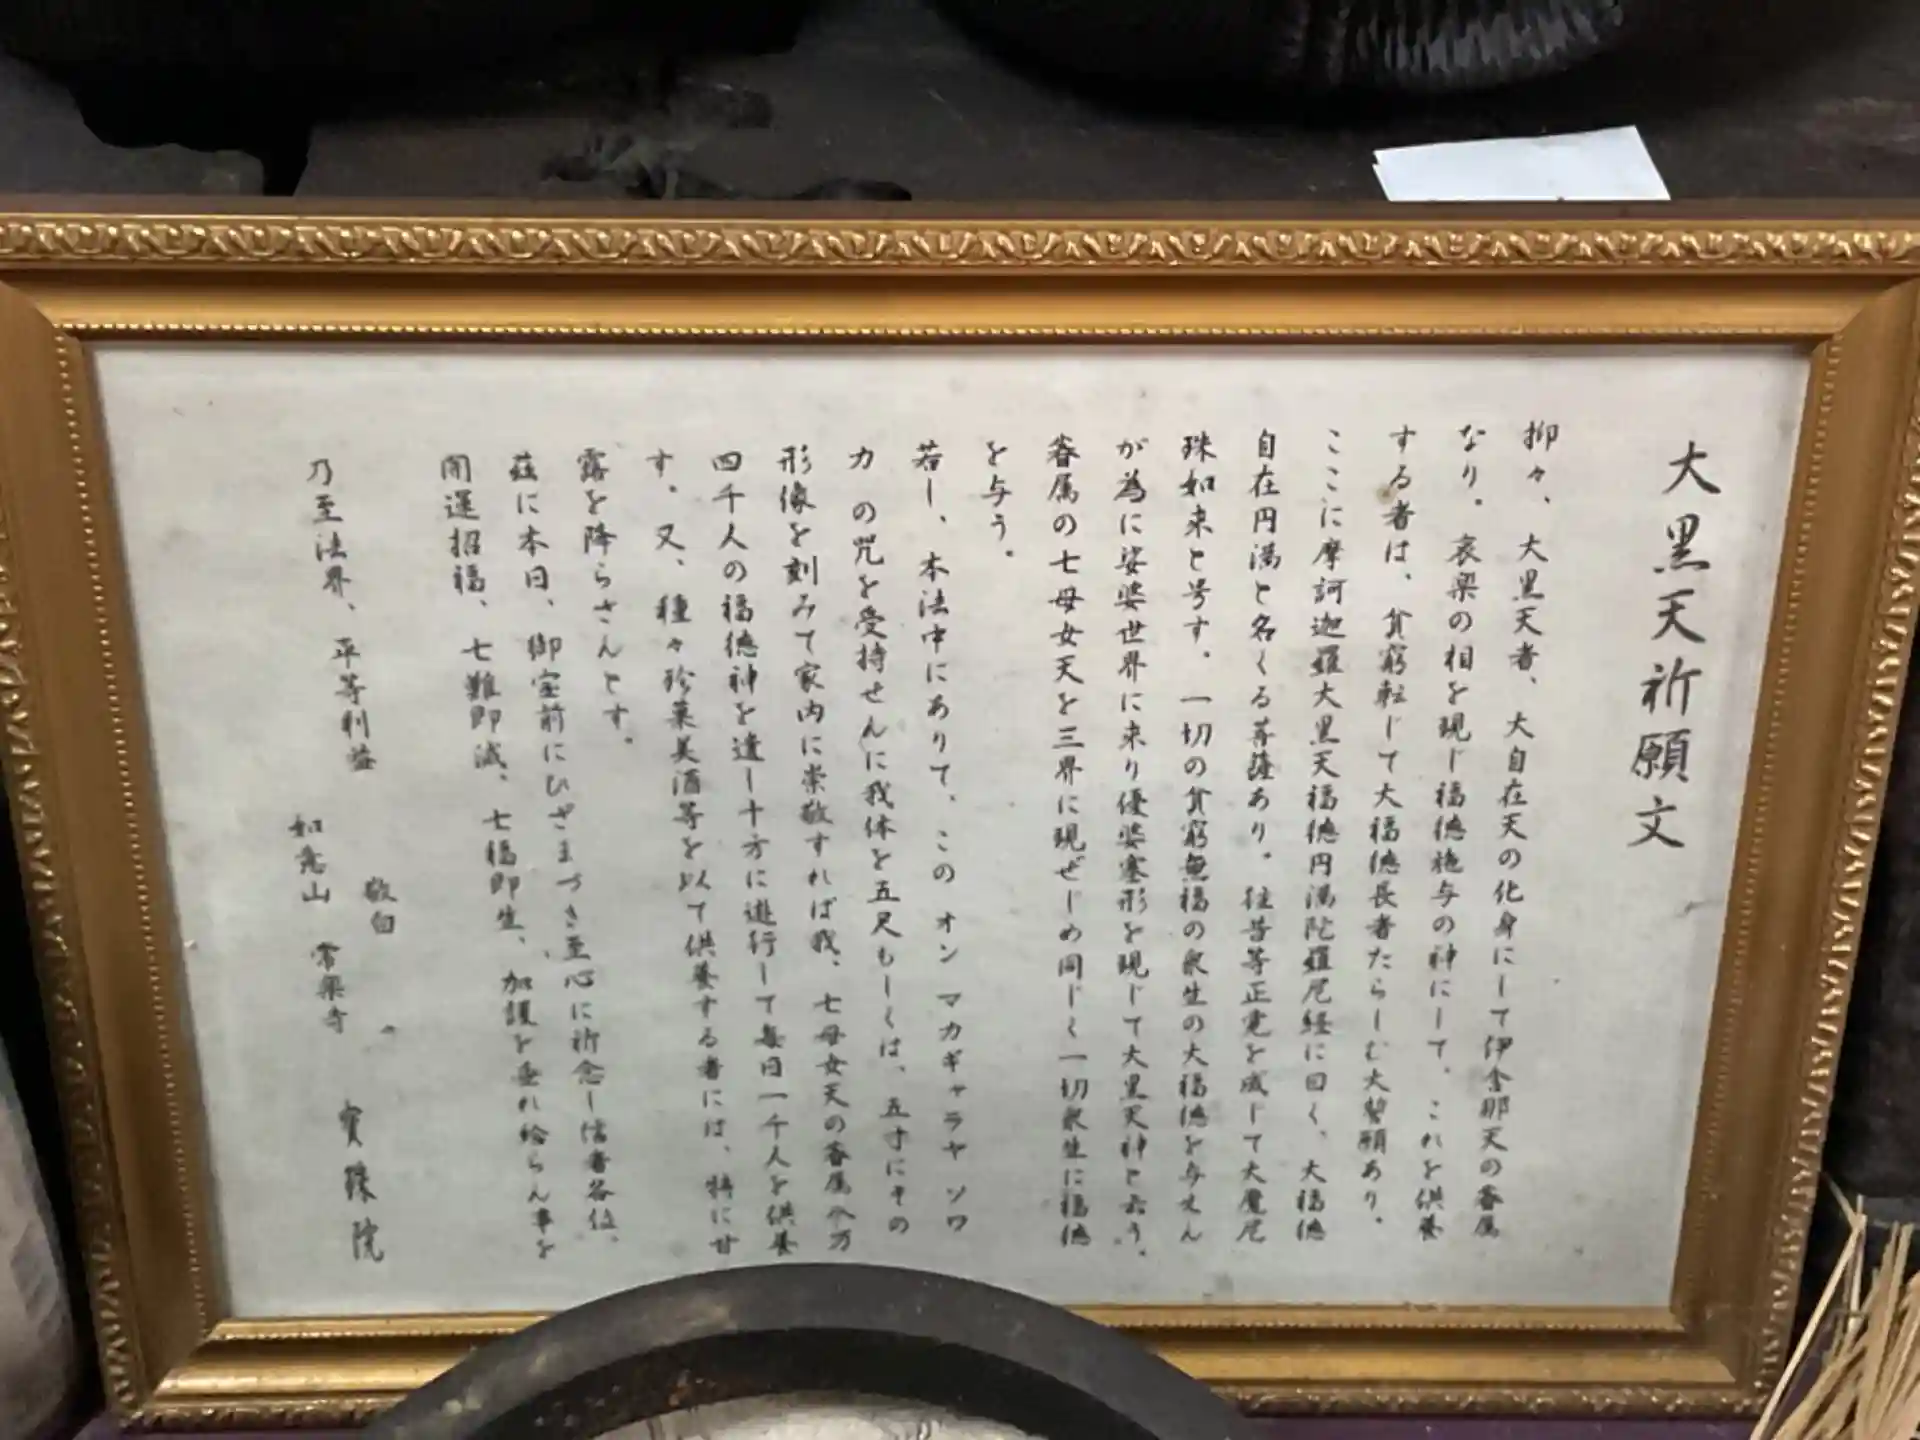 大黒天祈願文
抑々、大黒天者、大自在天の化身にして伊舎那天の眷属
なり。哀楽の相を現じ福徳施与の神にして、これを供養
する者は、貧窮転じて大福徳長者たらしむ大誓願あり。
ここに摩訶迦羅大黒天福徳円満陀羅尼経に曰く、大福徳
自在円満と名くる菩薩あり。往昔等正覚を成じて大魔尼
珠如来と号す。一切の貧窮無福の衆生の大福徳を与えん
が為に娑婆世界に来り優婆塞形を現じて大黒天神と云う。
眷属の七母女天を三界に現ぜじめ同じく一切衆生に福徳
を与う。
若し、本法中にありて、この オン マカギャラヤ ソワ
カ の咒を受持せんに我体を五尺もしくは、五寸にその
形像を刻みて家内に崇敬すれば我、七母女天の眷属八万
四千人の福徳神を遣し十方に遊行して毎日一千人を供養
す。又、種々珍菓美酒等を以て供養する者には、特に甘
露を降らさんとす。
茲に本日、御宝前にひざまづき至心に祈念し信者各位、
開運招福、七難即滅、七福即生、加護を垂れ給らん事を
敬白
乃至法界、平等利益
如意山 常楽寺 寳珠院